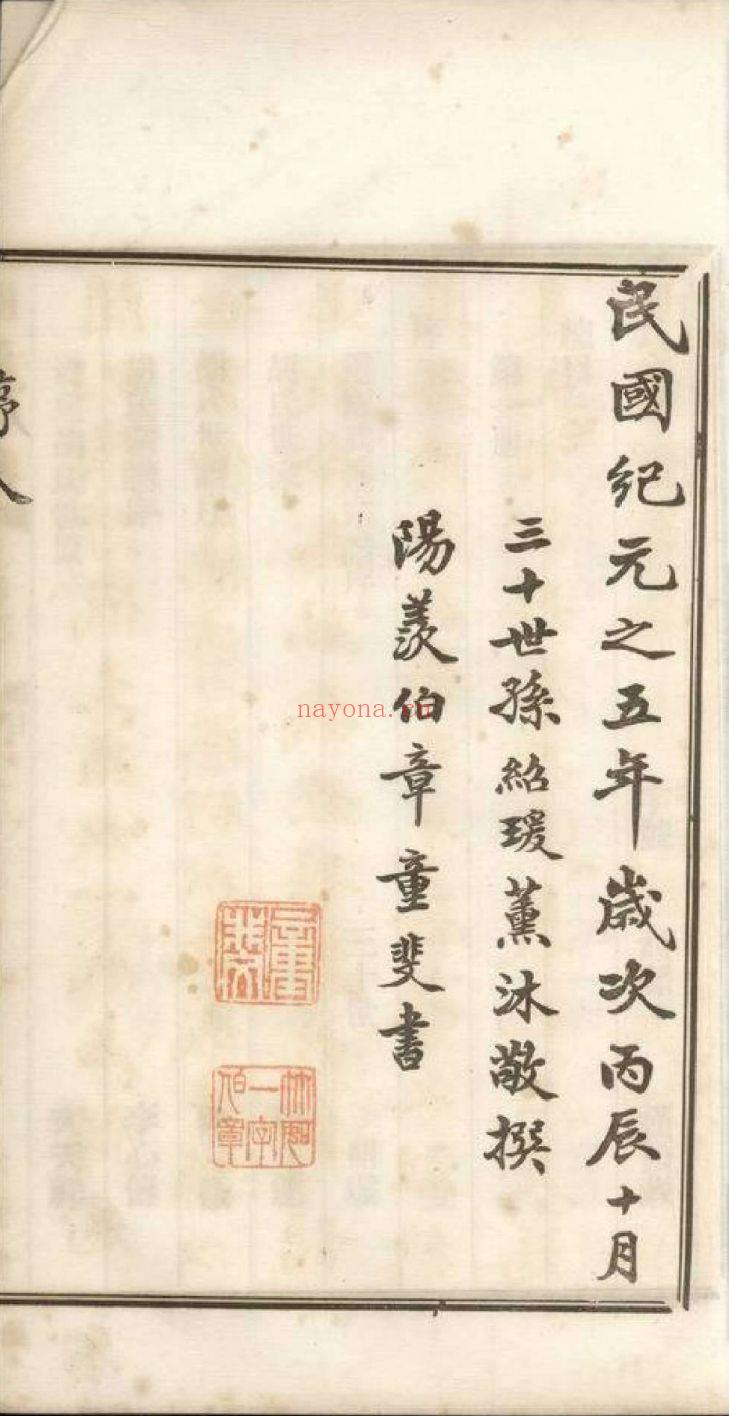 民國紀元之五年歲次丙辰十月
三十世孫紹瑗薰沐敬撰
陽羨伯章童斐書
童斐
一字伯章
nayona.cn